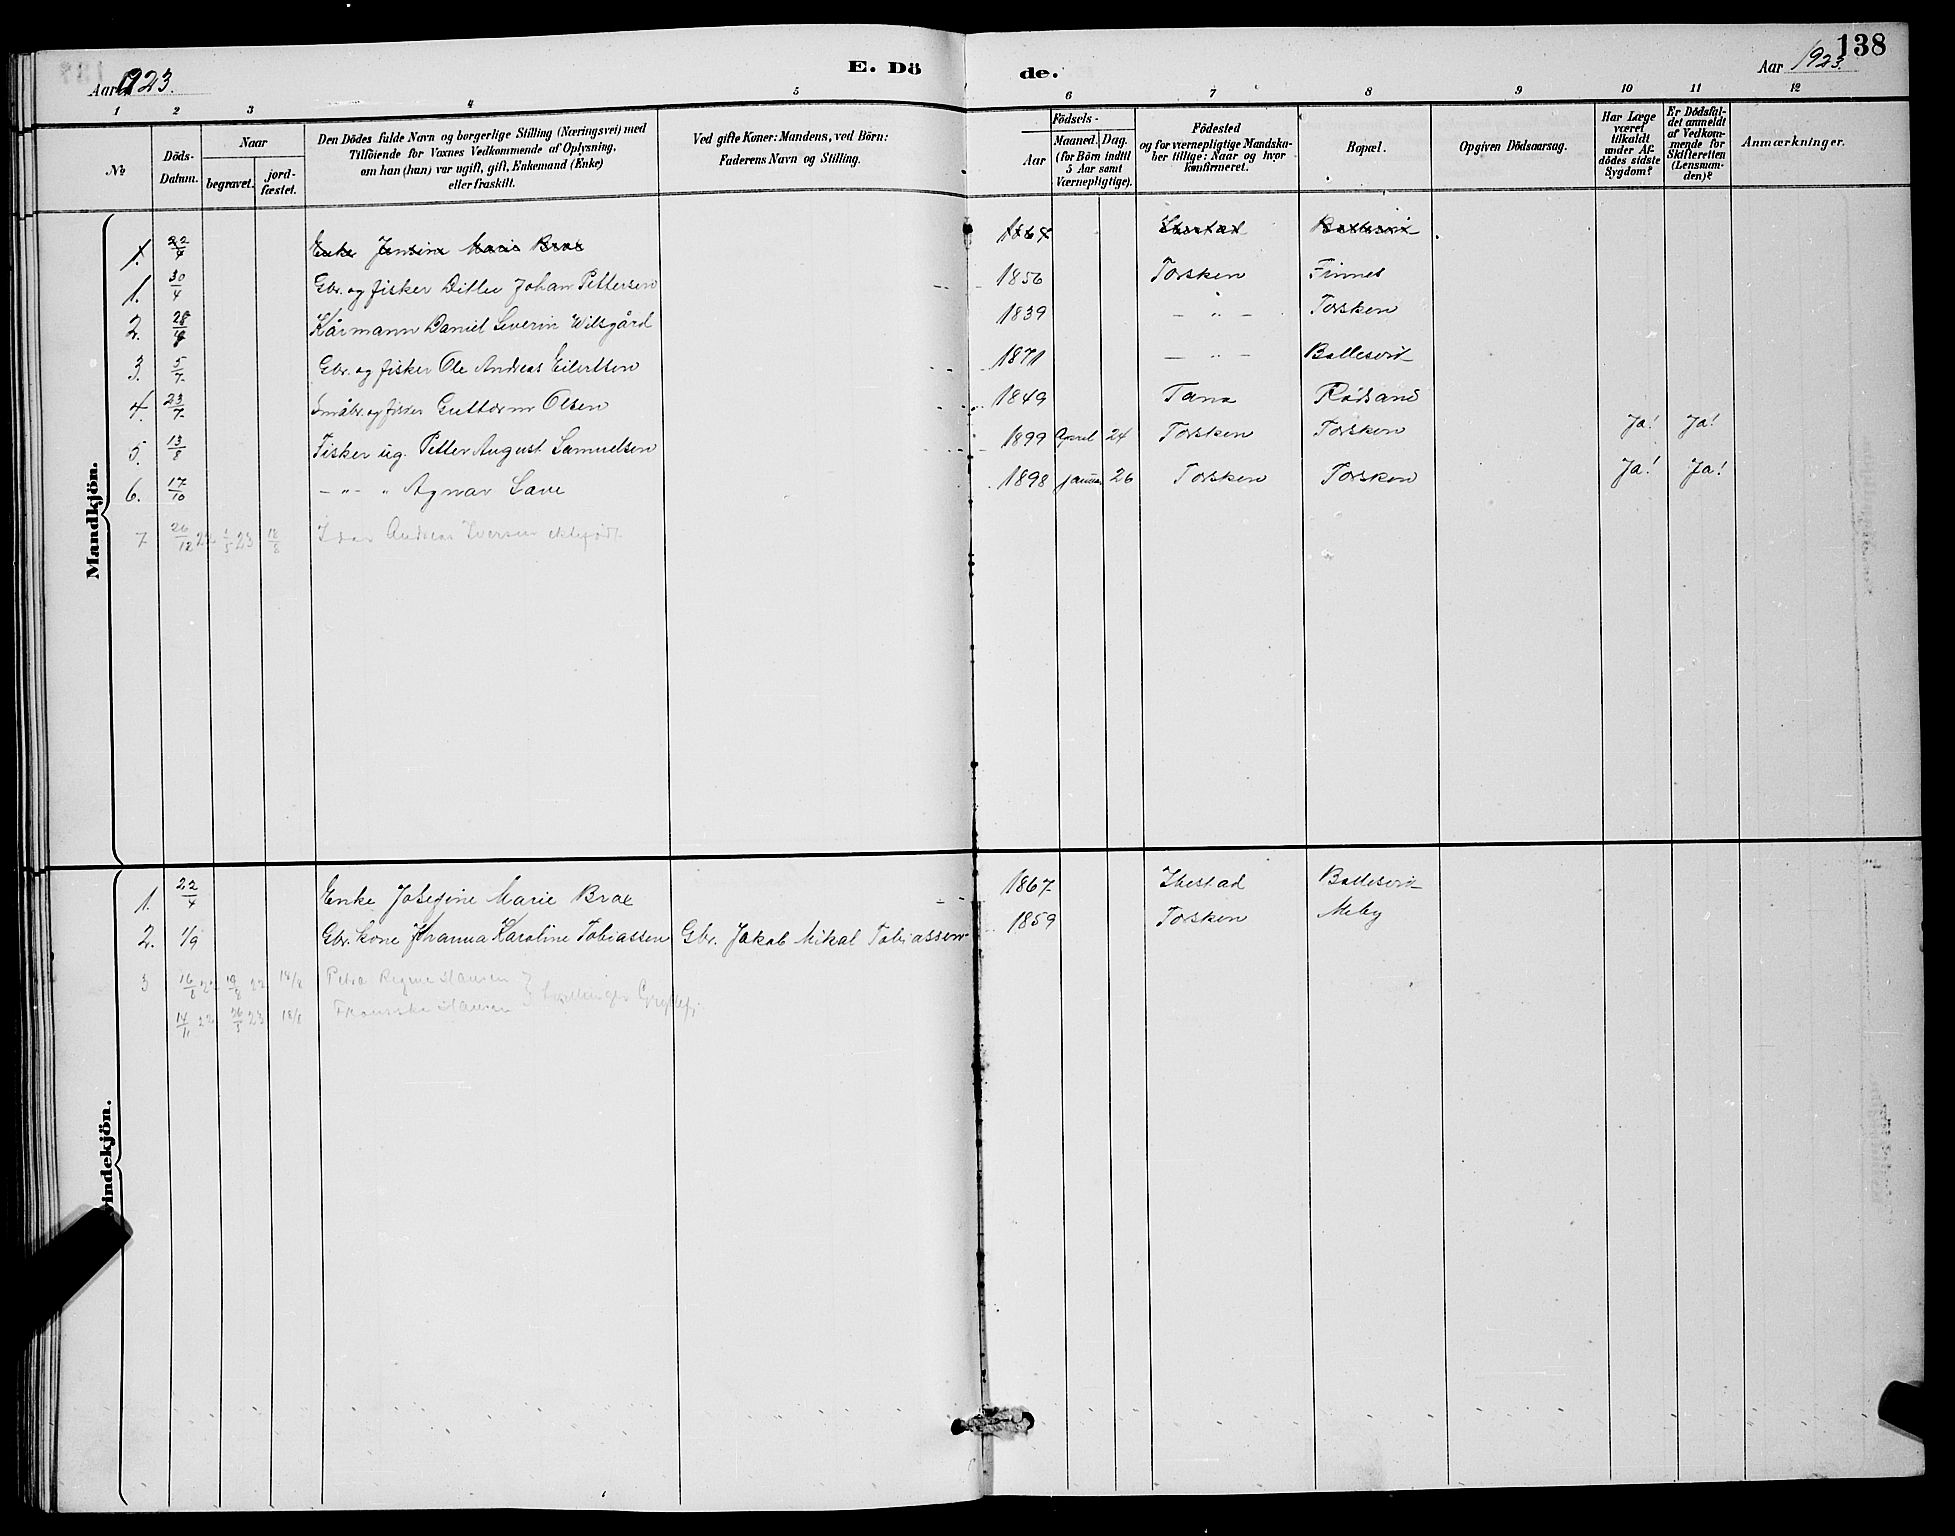 138
Aar 1923.
E. Dö
de.
Aar 1923.
1 2 3 4 5 6 7 8 9 10 11 12
No
Döds-Datum.
Naar
begravet.
jord-fæstet.
Den Dödes fulde Navn og borgerlige Stilling (Næringsvei) med
Tilföiende for Voxnes Vedkommende af Oplysning,
om han (hun) var ugift, gift, Enkemand (Enke)
eller fraskilt.
Ved gifte Koner: Mandens, ved Börn:
Faderens Navn og Stilling.
Födsels-
Aar
Maaned.
Dag.
(for Börn indtil
5 Aar samt
Værnepligtige).
Födested
og for værnepligtige Mandska-
ber tillige: Naar og hvor
konfirmeret.
Bopæl.
Opgiven Dödsaarsag.
Har Læge
været
tilkaldt
under Af-
dödes sidste
Sygdom?
Er Dödsfal-
det anmeldt
af Vedkom-
mende for
Skifteretten
(Lensman-
den)?
Anmærkninger.
Mandkjön.
1. 22/4 Enke Marie Brox Ibestad Ballesvik
1. 30/4 Gbr. og fisker Ditlev Johan Pettersen 1856 Torsken Finnes
2. 28/4 Kårmann Daniel Severin Wilsgård 1839 - " - Torsken
3. 5/7 Gbr. og fisker Ole Andreas Eilertsen 1871 - " - Ballesvik
4. 23/7 Småbr. og fisker Guttorm Olsen 1849 Tana Rödsand
5. 13/8 Fisker ug. Petter August Samuelsen 1899 April 24 Torsken Torsken Ja! Ja!
6. 17/10 - " - " Agnar Lave 1898 januar 26 Torsken Torsken Ja! Ja!
7 26/12 22 /5 23 18/8 Andreas Iversen
indekjön.
1. 22/4 Enke Josefine Marie Brox 1867 Ibestad Ballesvik
2. 1/9 Gbr. kone Johanna Karoline Tobiassen Gbr. Jakob Mikal Tobiassen 1859 Torsken Medby
3 16/8 22 19/8 22 18/8 Petra Regine Hansen
14/11 22 26/5 23 18/8 Hansen